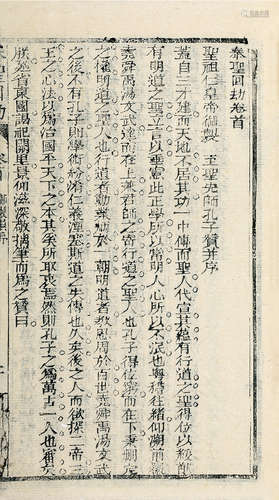 聖回劫卷首
聖祖仁皇帝御製　至聖先師孔子贊并序
蓋自三才建而天地不居其功一中傳而聖人代宣其蘊有行道之聖得位以綏猷
有明道之聖立言以垂憲此正學所以常明人心所以不泯也粵稽往緒仰溯前徽
堯舜禹湯文武達而在上兼君師之寄行道之聖人也孔子不得位窮而在下秉刪
述之權明道之聖人也行道者勳業炳於一朝明道者教思周於百世堯舜禹湯文武
之後不有孔子則學術紛淆仁義湮塞斯道之失傳也久矣後之人而欲探二帝三
王之心法以為治國平天下之本其奚所取衷焉然則孔子之為萬古一人也審矣
朕巡省東國謁祀闕里景仰滋深敬摛筆而為之贊曰
聖回劫
卷首